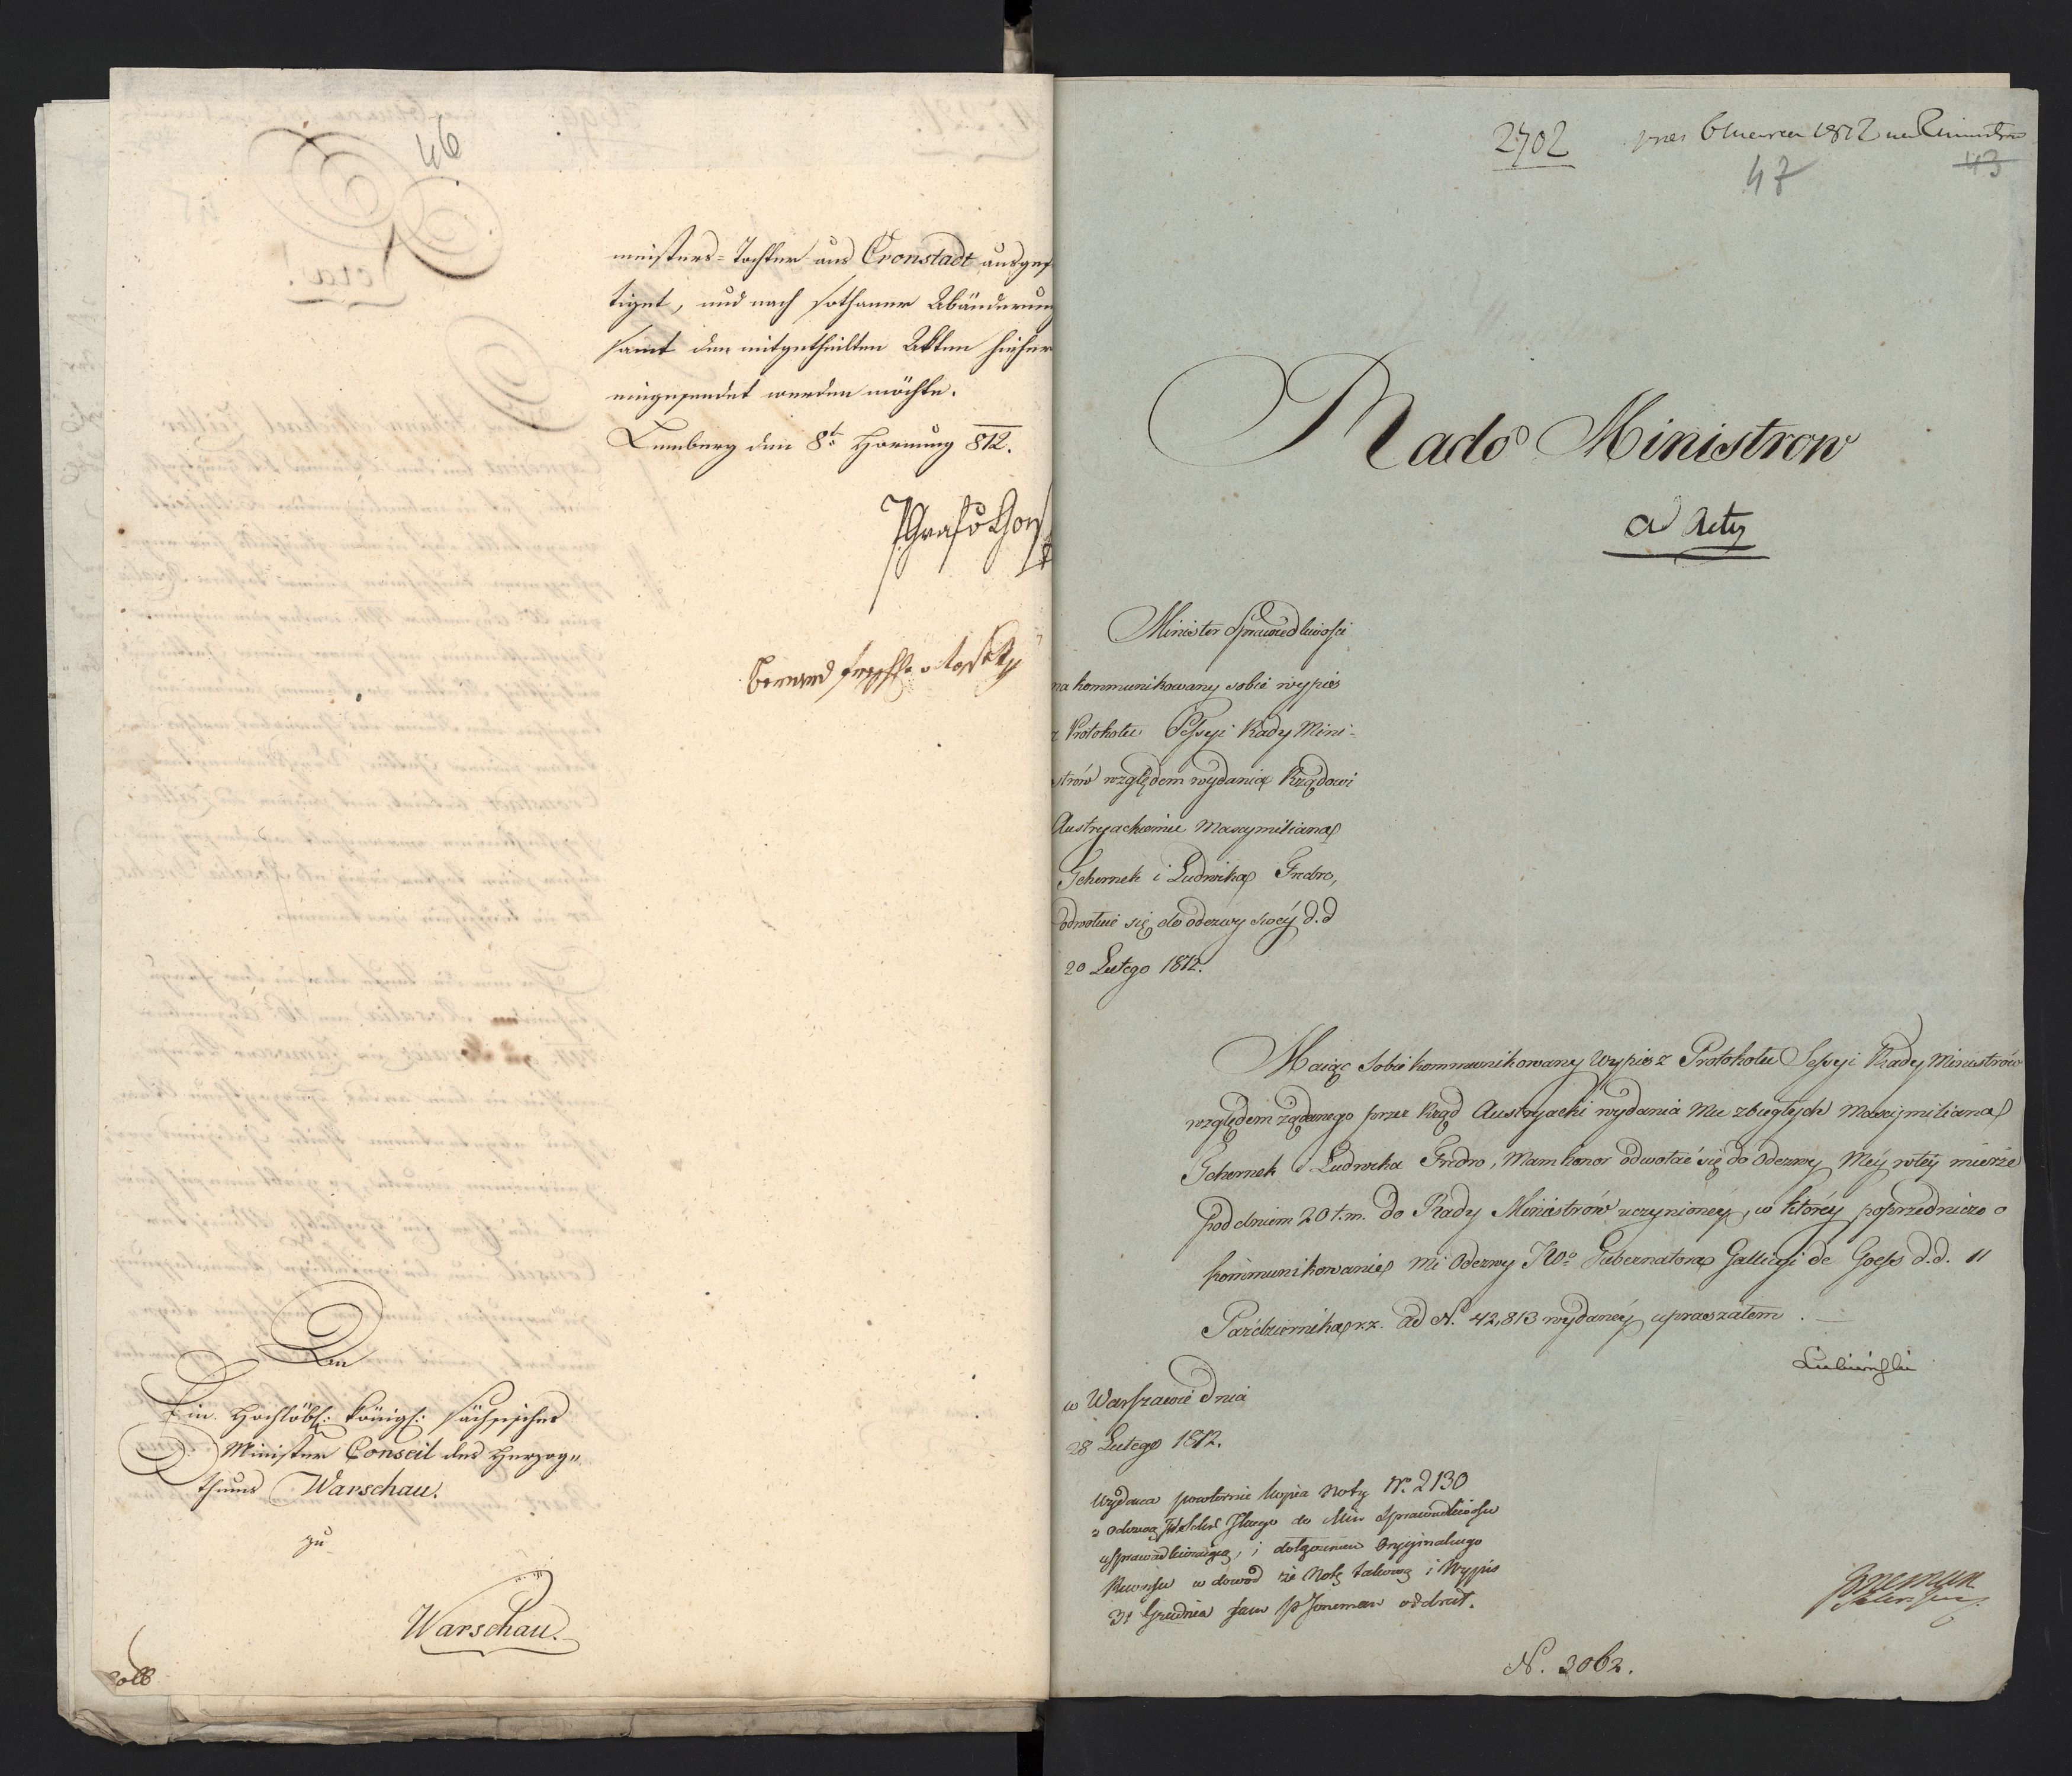 46
meisters=Tochter aus Cronstadt ausgef
tiget, und nach sothaner Abänderung
samt den mitgetheilten Akten hieher
eingesendet werden möchte.
Lemberg den 8t Hornung 812.
An
Ein Hochlöbl: königl: sächsisches
Minister Conseil des Herzog„
thums Warschau.
zu
Warschau.
2702 1812
47 43
Rado Ministrow
ad Acty
Minister Sprawiedliwości
na kommunikowany sobie wypis
z Protokołu Sessyi Rady Mini-
strów względem wydania Rządowi
Austryackiemu Maxymiliana
Schornek i Ludwika Fredro,
odwołuie się do odezwy swéy d.d
20 Lutego 1812.
Maiąc sobie kommunikowany Wypis z Protokołu Sessyi Rady Ministrów
względem żądanego przez Rząd Austryacki wydania Mu zbiegłych Maxymiliana
Schornek i Ludwika Fredro, Mam honor odwołać się do Odezwy Méy wtéy mierze
pod dniem 20 t.m. do Rady Ministrów uczynionéy, w któréy poprzedniczo o
kommunikowanie mi Odezwy JWo Gubernatora Gallicyi de Goess d.d. 11
Października r.z. ad N. 42,813 wydanéy upraszałem.
Lubieński
w Warszawie dnia
28 Lutego 1812.
Wydana powtórnie kopia Noty No 2130
z odezwą do Min Sprawiedliwości
usprawiedliwiaiącą, i dołączeniem Oryginalnego
Rewersu w dowód że Notę takową i Wypis
31 Grudnia sam odebrał.
N. 3062.